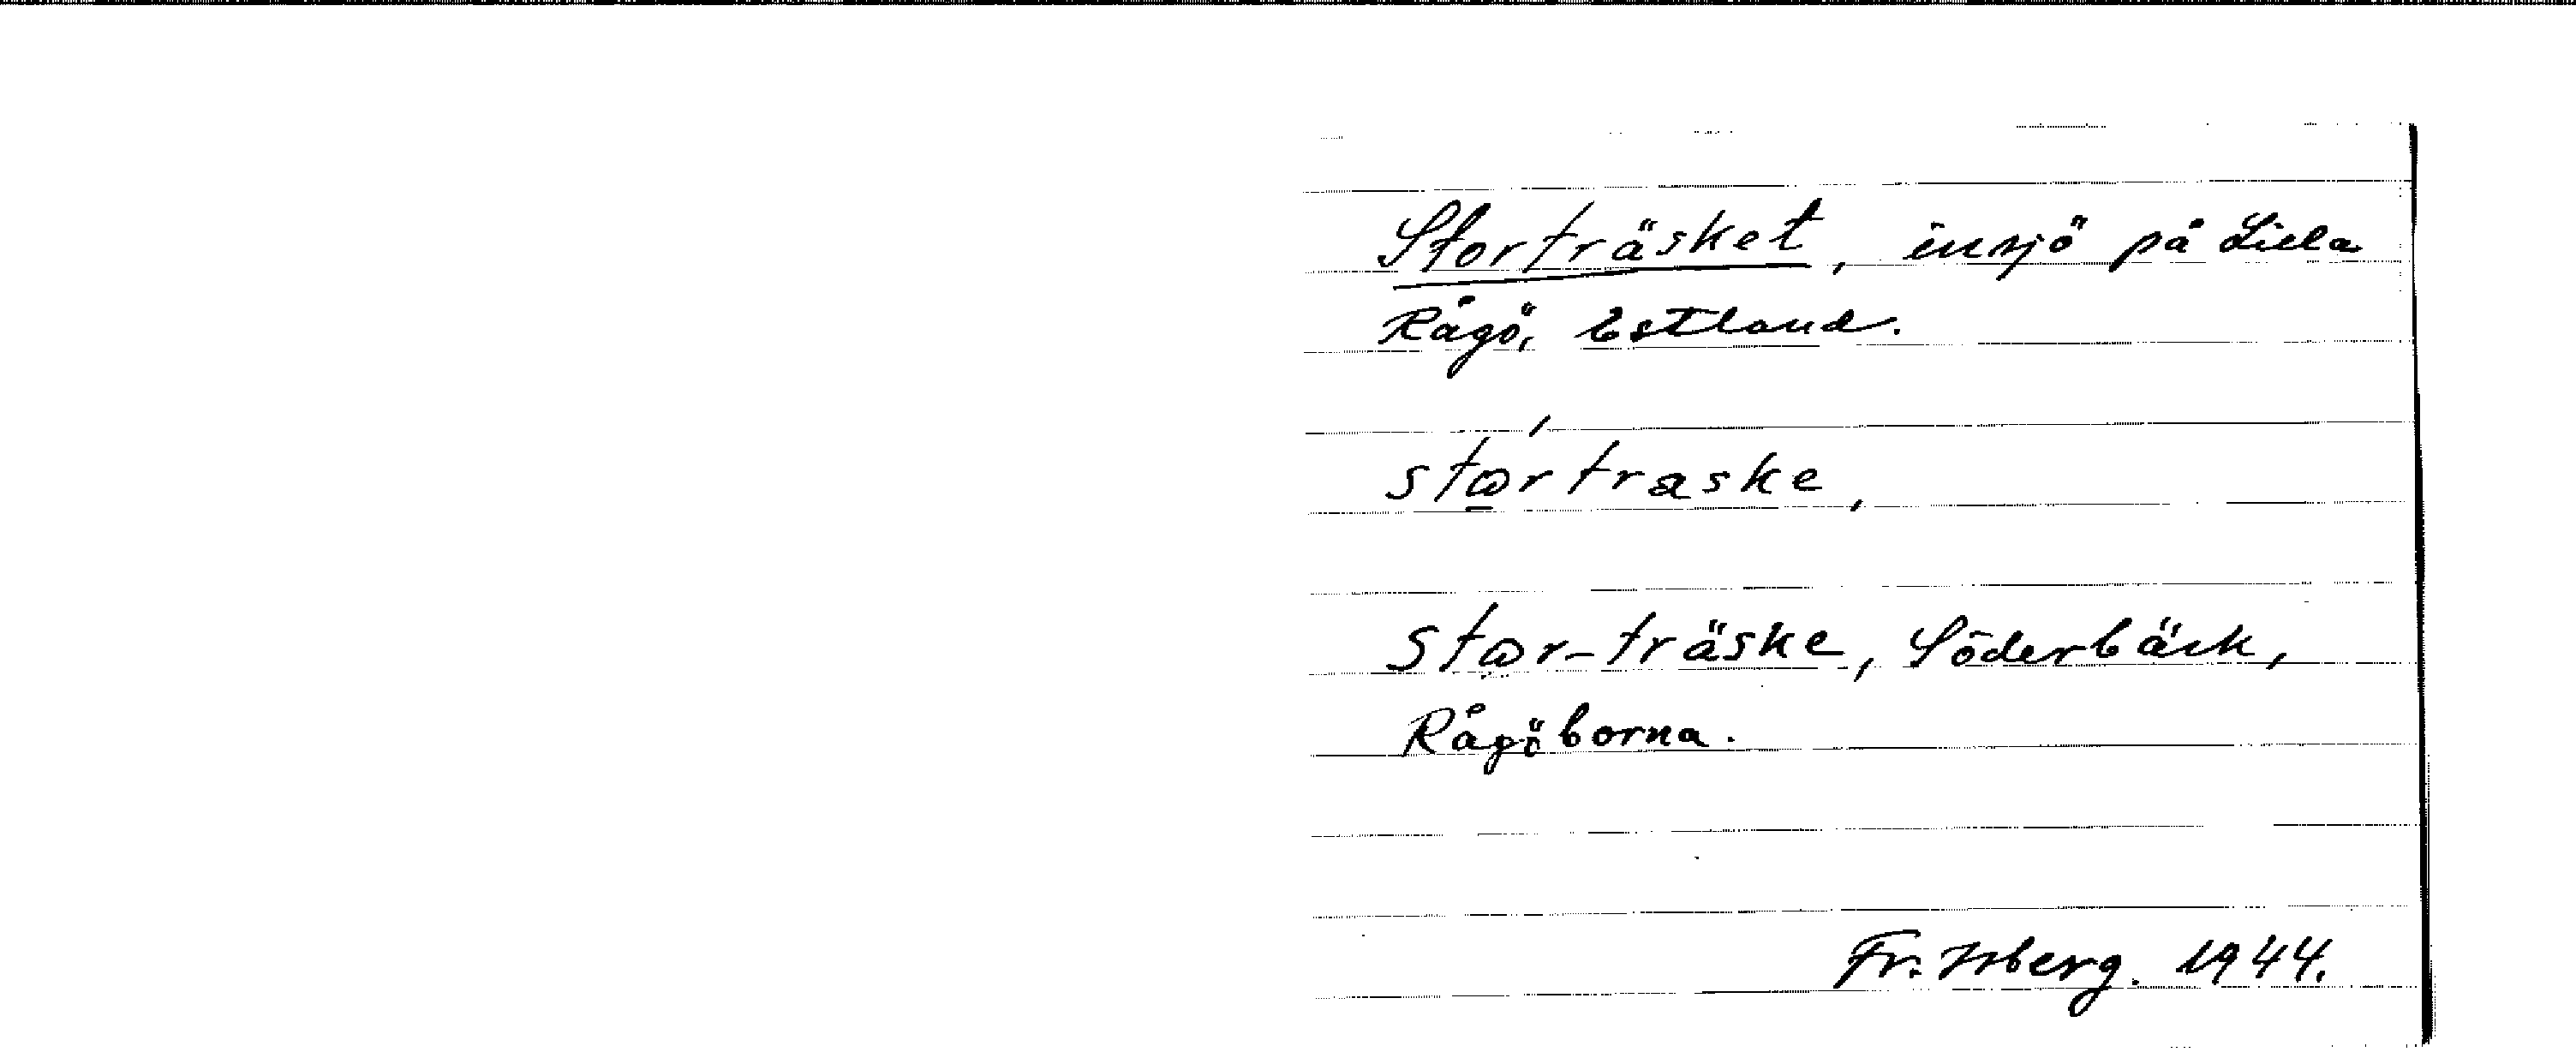 Storträsket, insjö på Lilla
Rågö, Estland.
stώ̱rtraske,
stωr-träske, Söderbäck,
Rågöborna.
Fr. Isberg. 1944.